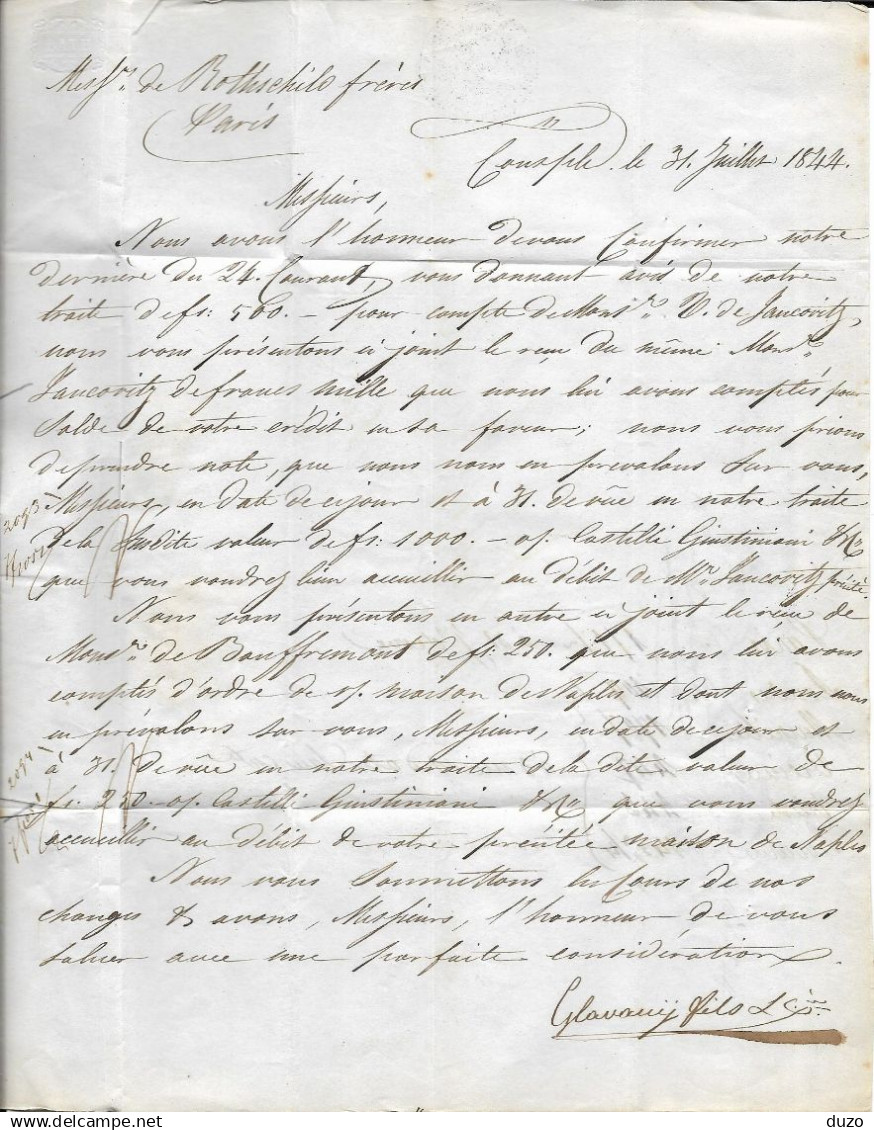 Messrs. de Rothschild frères
Paris
Constple. le 31. Juillet 1844.
Messieurs,
Nous avons l'honneur de vous Confirmer notre
dernière du 24. Courant, vous donnant avis de notre
traite de fs: 500.- pour compte de Monsr. V. de Jancovitz,
nous vous présentons ci joint le reçu du même Monsr.
Jancovitz de francs mille que nous lui avons comptés pour
Solde de votre crédit en sa faveur; nous vous prions
de prendre note, que nous nous en prevalons Sur vous,
Messieurs, en date de ce jour et à 31. de vûe en notre traite
de la Susdite valeur de fs: 1000.- o/. Castelli Giustiniani & Co
que vous voudrez bien accueillir au débit de Mr. Jancovitz précité.
Nous vous présentons en outre ci joint le reçu de
Monsr. de Bauffremont de fs: 250. que nous lui avons
comptés d'ordre de v/. maison de Naples et dont nous nous
en prévalons sur vous, Messieurs, en date de ce jour et
à 31. de vûe en notre traite de la dite valeur de
fs. 250.- o/. Castelli Giustiniani & Co que vous voudrez
accueillir au débit de votre précitée maison de Naples
Nous vous Soumettons les Cours de nos
changes & avons, Messieurs, l'honneur de vous
saluer avec une parfaite considération.
Glavany fils & Cie.
2093
2094
duzo